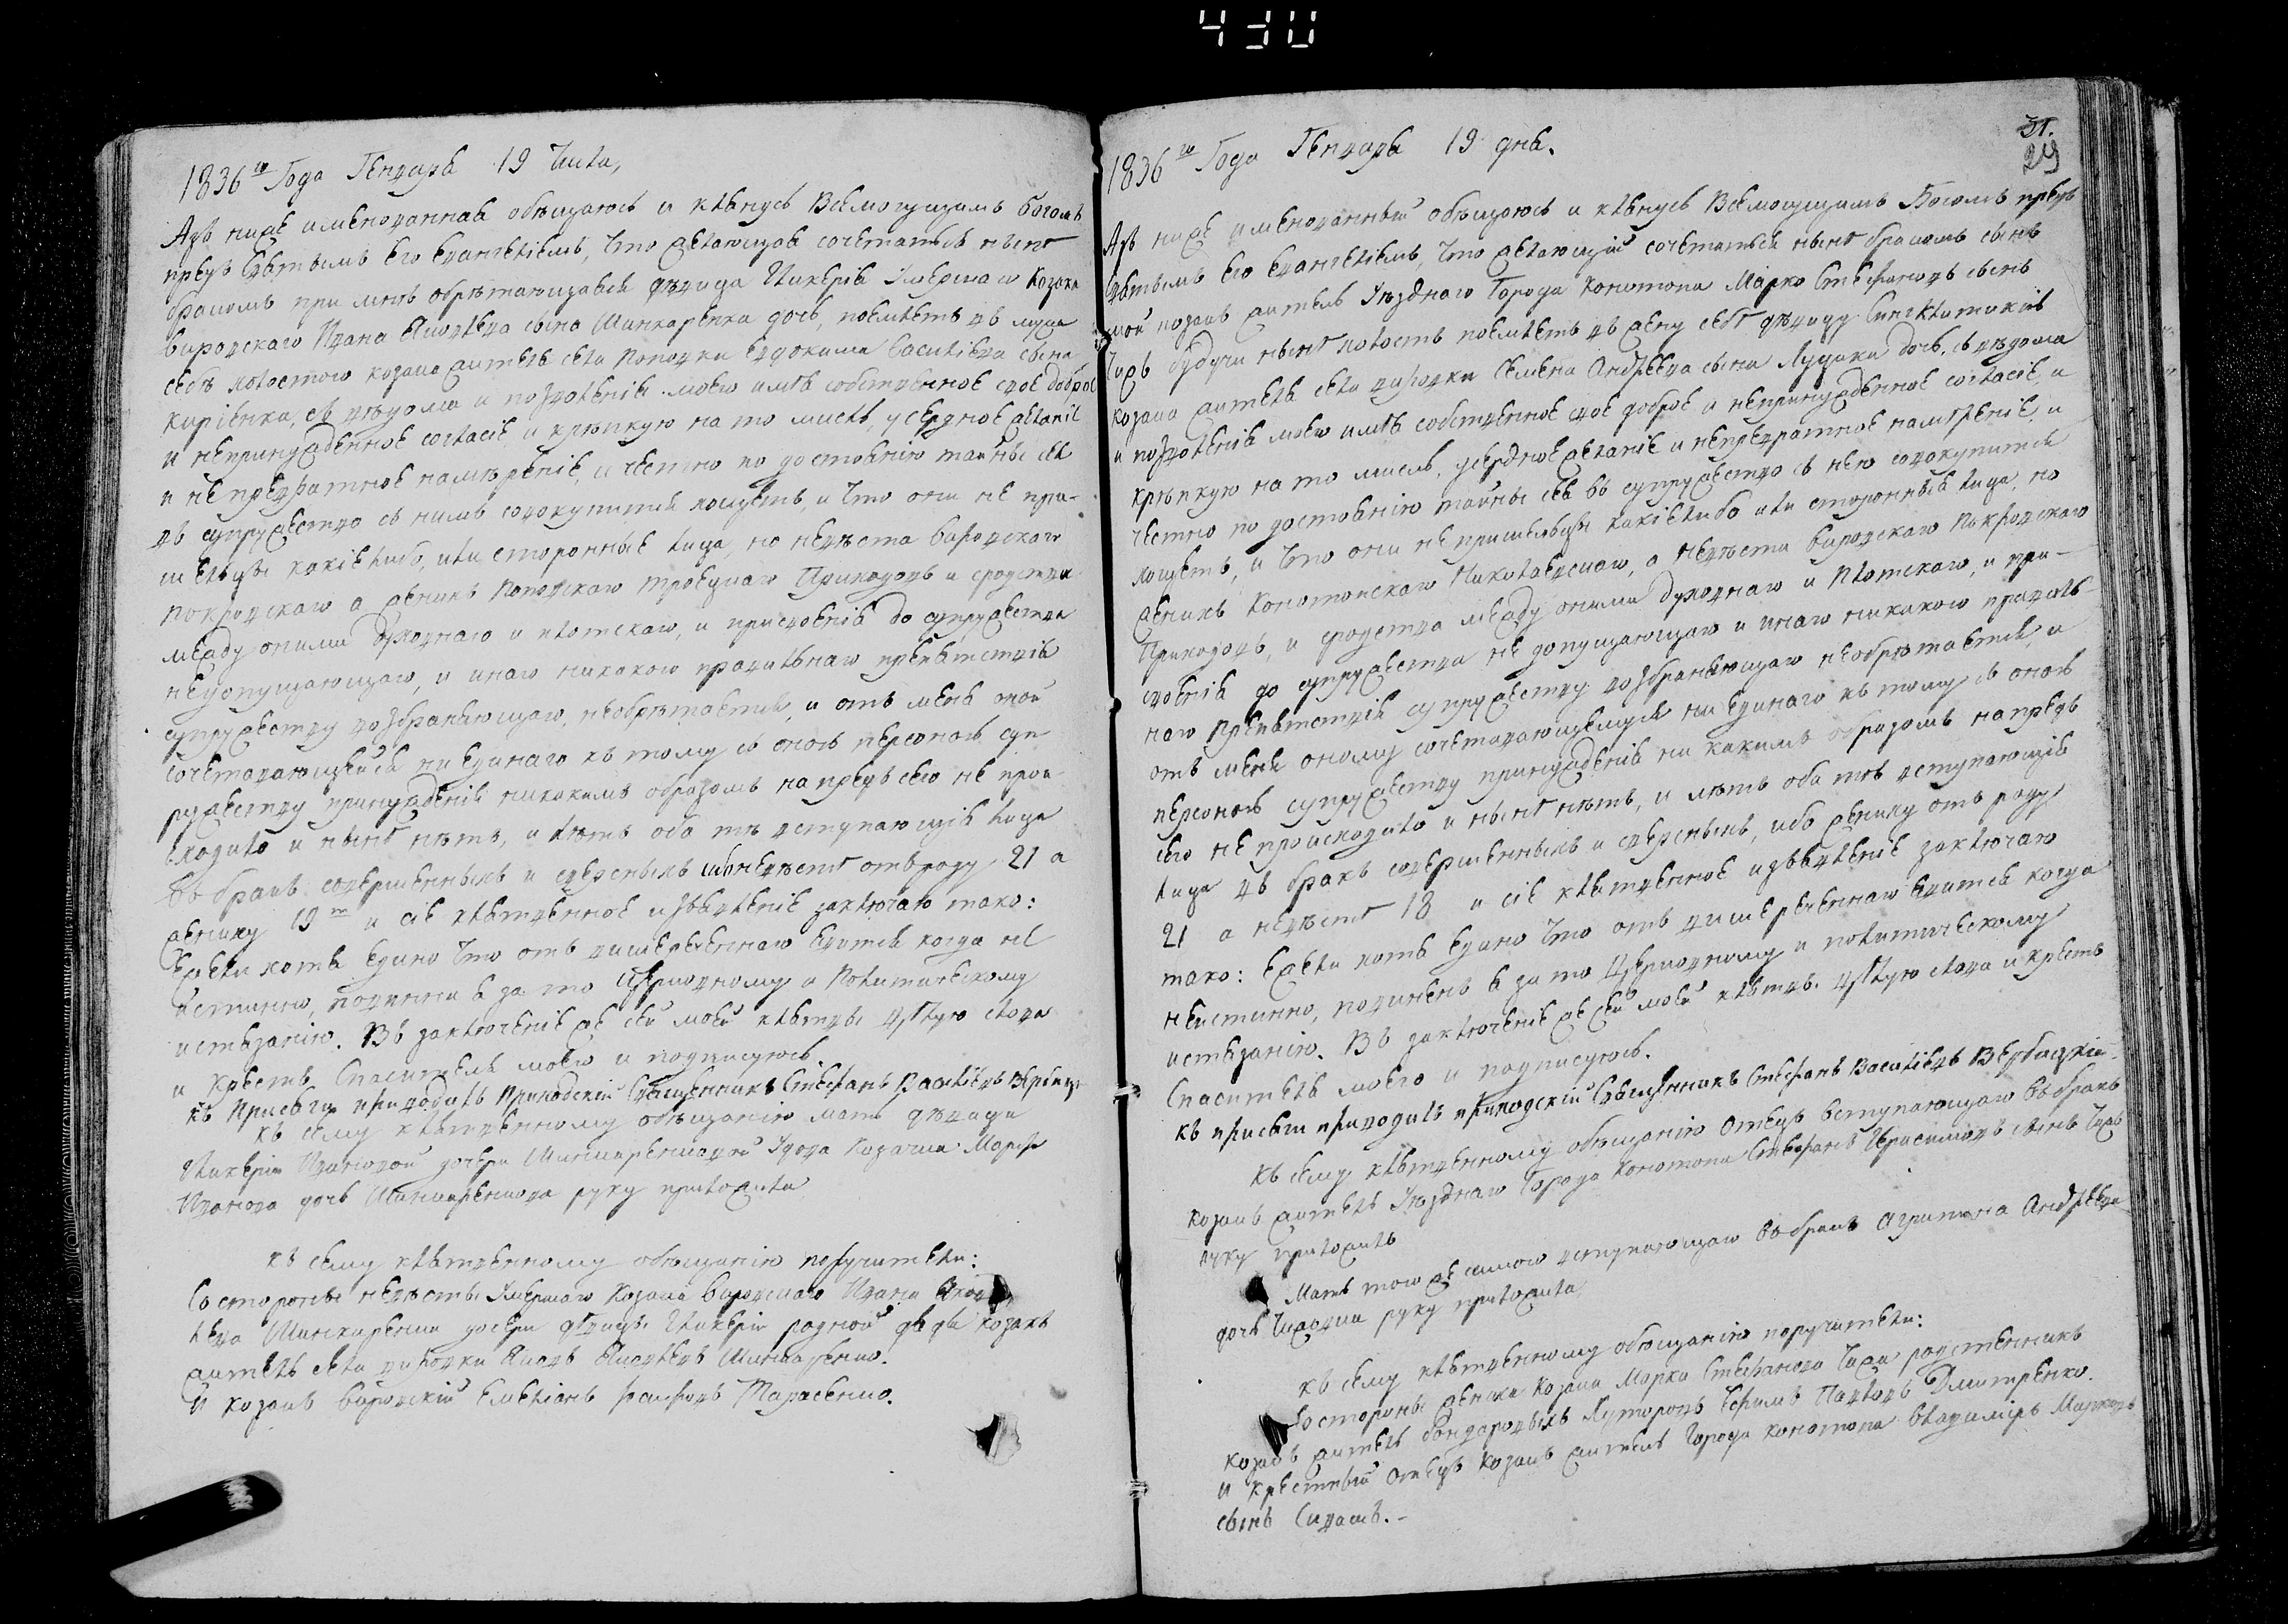 430
1836го Года Генваря 19 Числа,
Азъ ниже именованная обѣщаюсь и клянусь Всемогущимъ Богомъ
предъ святымъ Его Евангеліемъ, что желающая сочетаться нынѣ
бракомъ при мнѣ обрѣтающаяся дѣвица Гликерія Умершаго Козака
вировскаго Ивана Яковлева сына Шинкаренка дочь, поемлетъ въ мужа
себѣ холостого козака жителя села Поповки Евдокима Василіева сына
Киріенка, съ вѣдома и позволенія моего имѣя собственное свое доброе
и непринужденное согласіе и крѣпкую на то мысль, усердное желаніе
и не превратное намѣреніе, и честно по достоянію тайны сея
въ супружество съ нимъ совокупится хощетъ, и что они не при-
шельцы какіе либо, или сторонные лица, но невѣста вировскаго
покровскаго а женихъ Поповскаго троецкаго Приходовъ и сродства
между оними духовнаго и плотскаго, и присвоенія до супружества
недопущающаго, и инаго никакого правильнаго препятствія
супружеству возбраняющаго, необрѣтается, и отъ меня оной
сочетавающейся ни единаго къ тому съ оною персоною суп-
ружеству принужденія никакимъ образомъ напредъ сего не прои-
сходило и нынѣ нѣтъ, и лѣтъ оба тѣ вступающія лица
во бракъ совершенныхъ и сверсныхъ ибо невѣстѣ отъ роду 21 а
жениху 19т и сіе клятвенное извявленіе заключаю тако:
Ежели хотя едино что отъ вишереченнаго явится когда не
истинно, повинна я за то Церковному и Политическому
истязанію. Въ заключеніе же сей моей клятвы цѣлую слова
и Крестъ Спасителя моего и подписуюсь.
къ Присягѣ приводилъ Приходскій Священникъ Стефанъ Василіевъ Вербиц-
къ сему клятвенному обѣщанію мать дѣвици
Гликеріи Ивановой дочери Шинкаренковой Удова Козачка Марфа
Иванова дочь Шинкаренкова руку приложила
къ сему клятвенному обѣщанію поручители:
Со стороны невѣсты Умершаго Козака вировскаго Ивана Яков-
лева Шинкаренка дочери дѣвицы Гликеріи родной дядя козакъ
житель села вировки Яковъ Яковлевъ Шинкаренко.
И козакъ вировскій Емеліанъ Тарасенко.
31.
29
1836го Года Генваря 19 дня.
Азъ ниже именованный обѣщаюсь и клянусь Всемощущимъ Богомъ предъ
святымъ Его Евангеліемъ, что желающій сочетаться нынѣ бракомъ сынъ
мой козакъ житель Уѣзднаго Города Конотопа Марко Стефановъ сынъ
Чижъ будучи нынѣ холостъ поемлетъ въ жену себѣ дѣвицу Синклитикію
козака жителя села вировки Семена Андреева сына Луцика дочь, съ вѣдома
и позволенія моего имѣя собственное свое доброе и непринужденное согласіе, и
крѣпкую на то мысль, усердное желаніе и непревратное намѣреніе, и
честно по достоянію тайны сея въ супружество съ нею совокупится
хощетъ, и что они непришельцы какіе либо или сторонныя лица, но
женихъ Конотопскаго Николаевскаго, а невѣста вировскаго Покровскаго
Приходовъ, и сродства между оними духовнаго и Плотскаго, и при-
своенія до супружества не допущающаго и инаго никакого правиль-
наго Препятствія супружеству возбраняющаго необрѣтается, и
отъ меня оному сочетавающемуся ни единаго къ тому съ оною
персоною супружеству принужденія ни какимъ образомъ напредъ
сего не происходило и нынѣ нѣтъ, и лѣтъ оба тѣ вступающія
лица въ бракъ совершенныхъ и сверсныхъ, ибо жениху отъ роду
21 а невѣстѣ 18 и сіе клятвенное извявленіе заключаю
тако: Ежели хотя едино что отъ вишереченнаго явится когда
неистинно, повиненъ я за то Церковному и политическому
истязанію. Въ заключеніе же сей моей клятвы цѣлую слова и крестъ
Спасителя моего и подписуюсь.
къ присягѣ приводилъ приходскій Священникъ Стефанъ Василіевъ Вербицкій
Къ сему клятвенному обѣщанію Отецъ вступающаго въ бракъ
козакъ житель Уѣзднаго Города Конотопа Стефанъ Герасимовъ сынъ Чижъ
руку приложилъ
Мать того же самого вступающаго въ бракъ Агрипина Андреева
дочь Чижова руку приложила
къ сему клятвенному обѣщанію поручители:
Состороны жениха Козака Марка Стефанова Чижа родственникъ
козакъ житель бондаровыхъ Хуторовъ Ефимъ Павловъ Дмитренко.
и крестный Отецъ Козакъ житель Города конотопа владиміръ Марковъ
сынъ Сидашъ.-